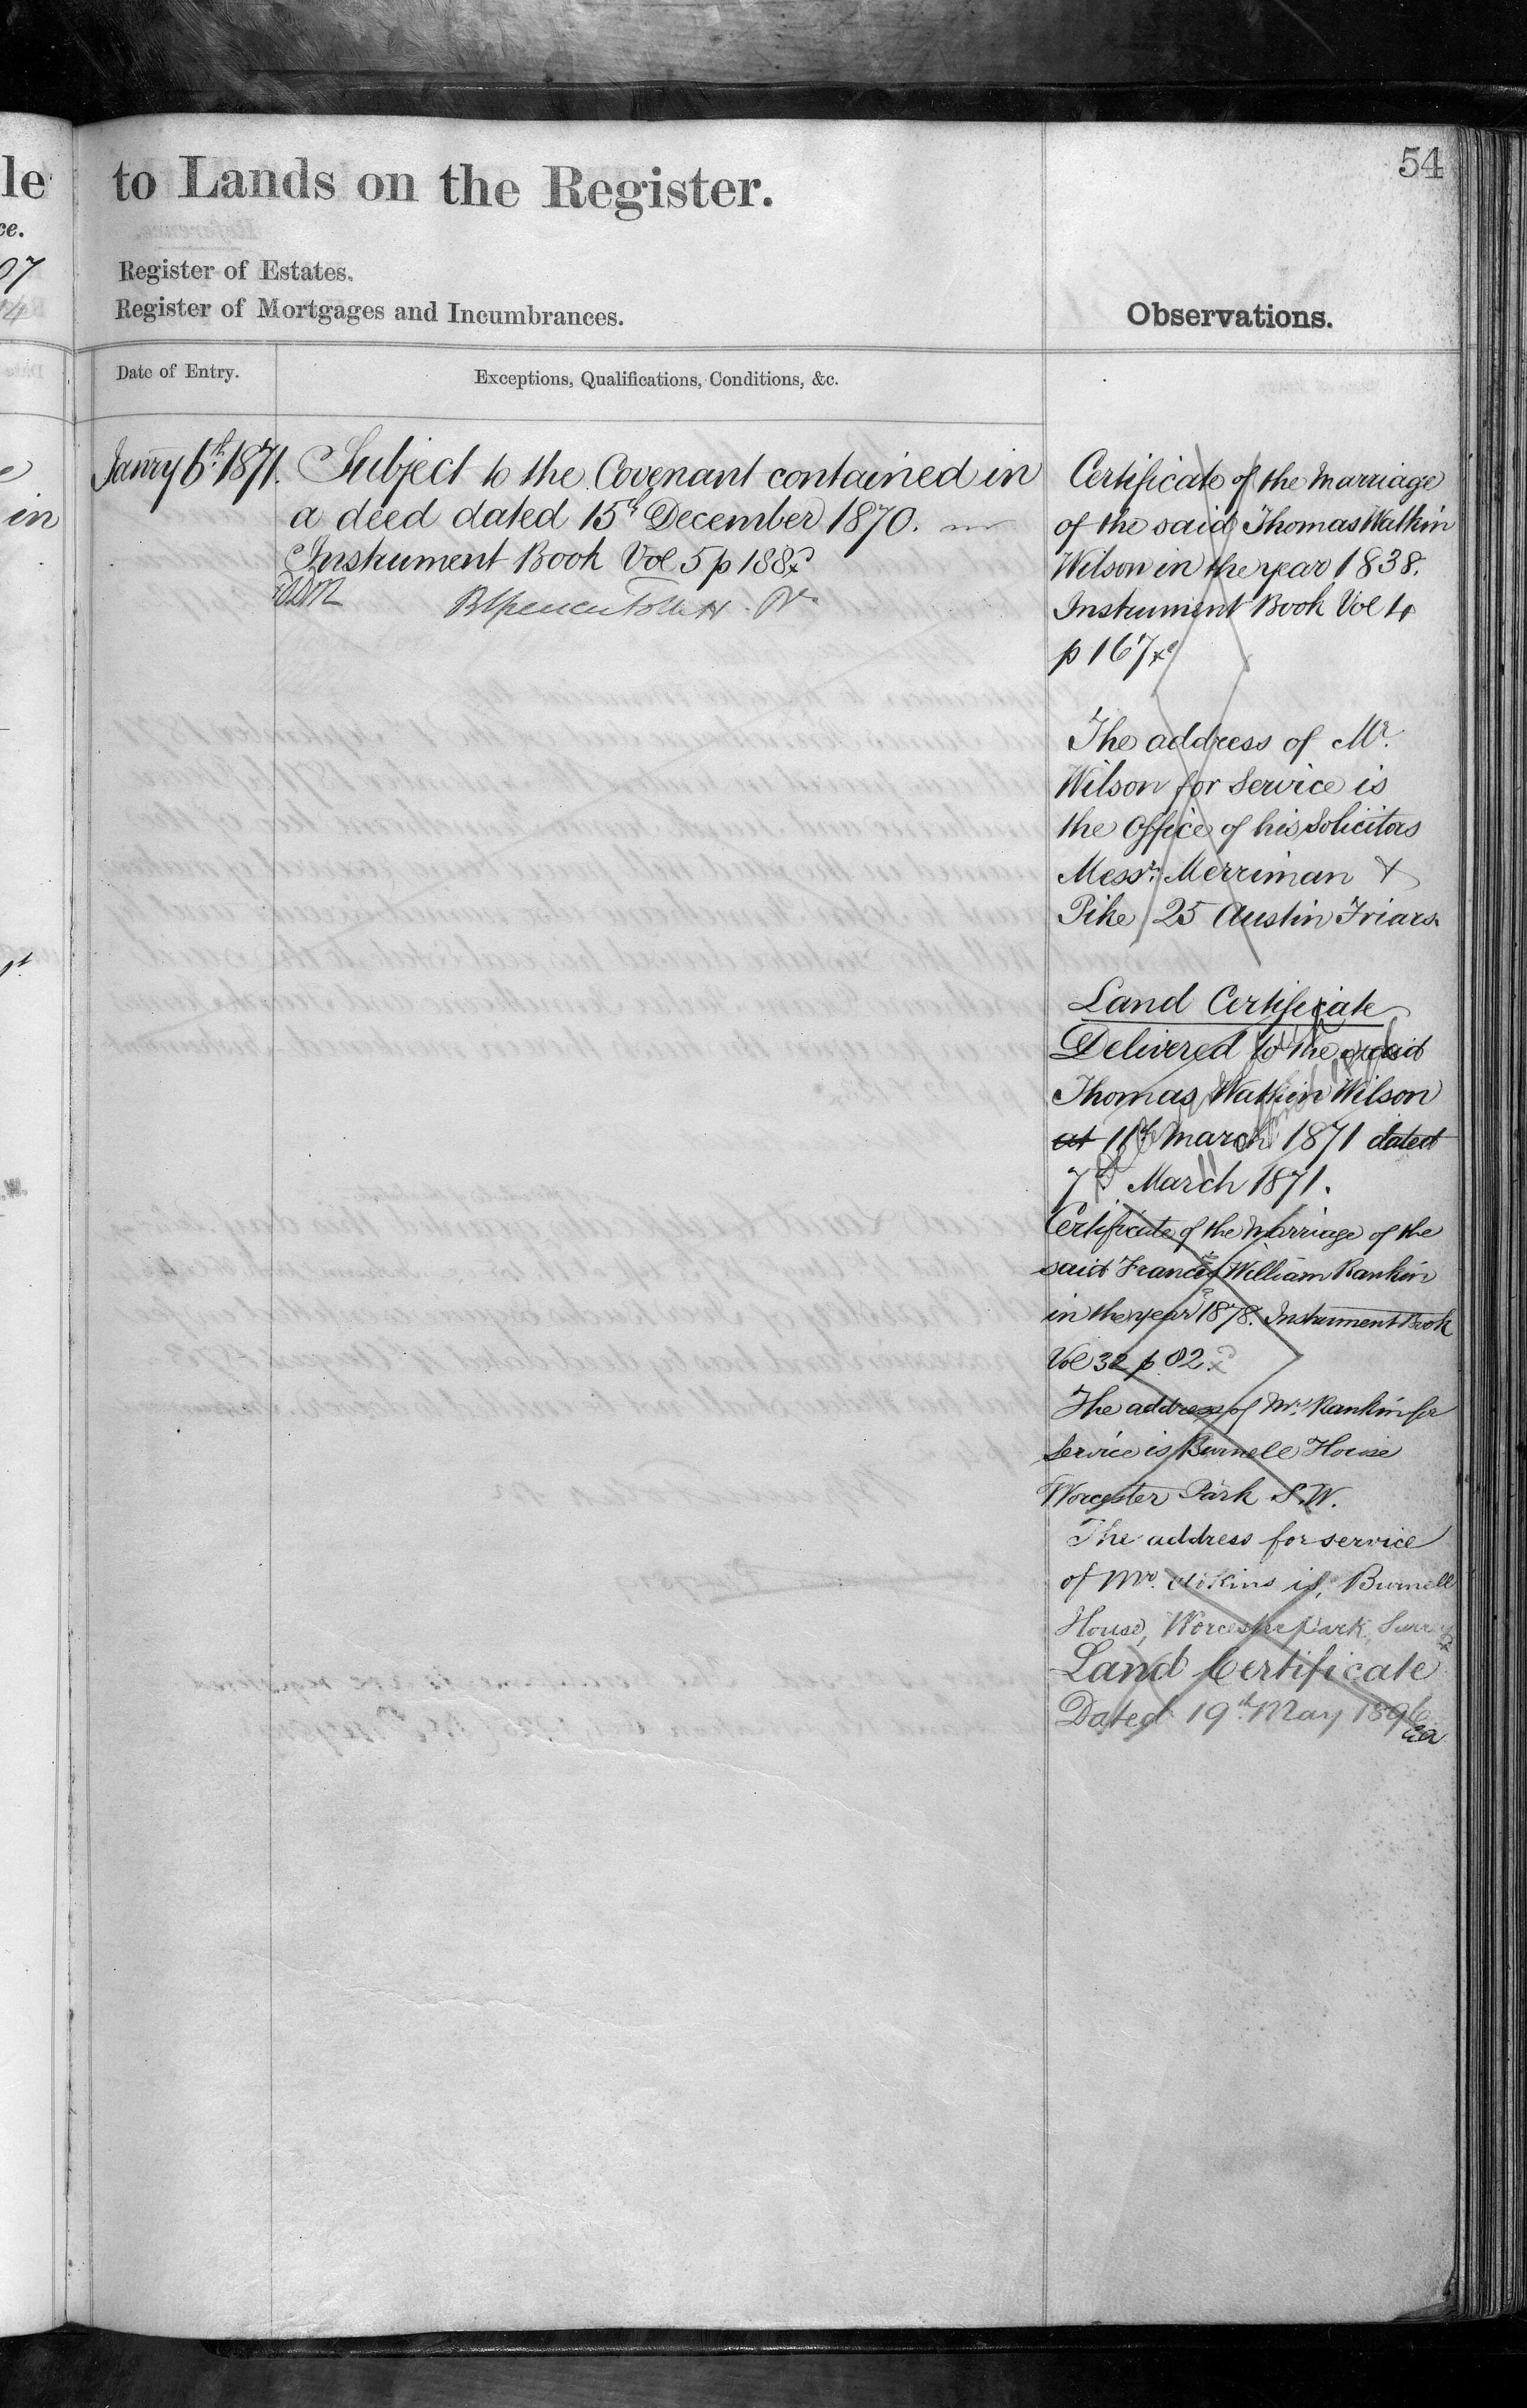 le
to Lands on the Register.
54
ce.
07
14
Register of Estates.
Register of Mortgages and Incumbrances.
Observations.
Date of Entry.
Exceptions, Qualifications, Conditions, &c.
Janry 6th 1871.
Subject to the Covenant contained in
a deed dated 15th December 1870.
Instrument Book Vol 5 p 188
in
Certificate of the Marriage
of the said Thomas Watkin
Wilson in the year 1838.
Instrument Book Vol 4
p 167
The address of Mr.
Wilson for Service is
the Office of his Solicitors
Messrs. Merriman &
Pike 25 Austin Friars
Land Certificate
Delivered to the said
Thomas Watkin Wilson
at 11th March 1871 dated
7th March 1871.
Certificate of the Marriage of the
said Francis William Rankin
in the year 1878. Instrument Book
Vol 32 p. 82.
The address of Mr. Rankin for
Service is Burnell House
Worcester Park S.W.
The address for service
of Mr. Aikins is, Burnell
House, Worcester Park, Surrey
Land Certificate
Dated 19th May 1896